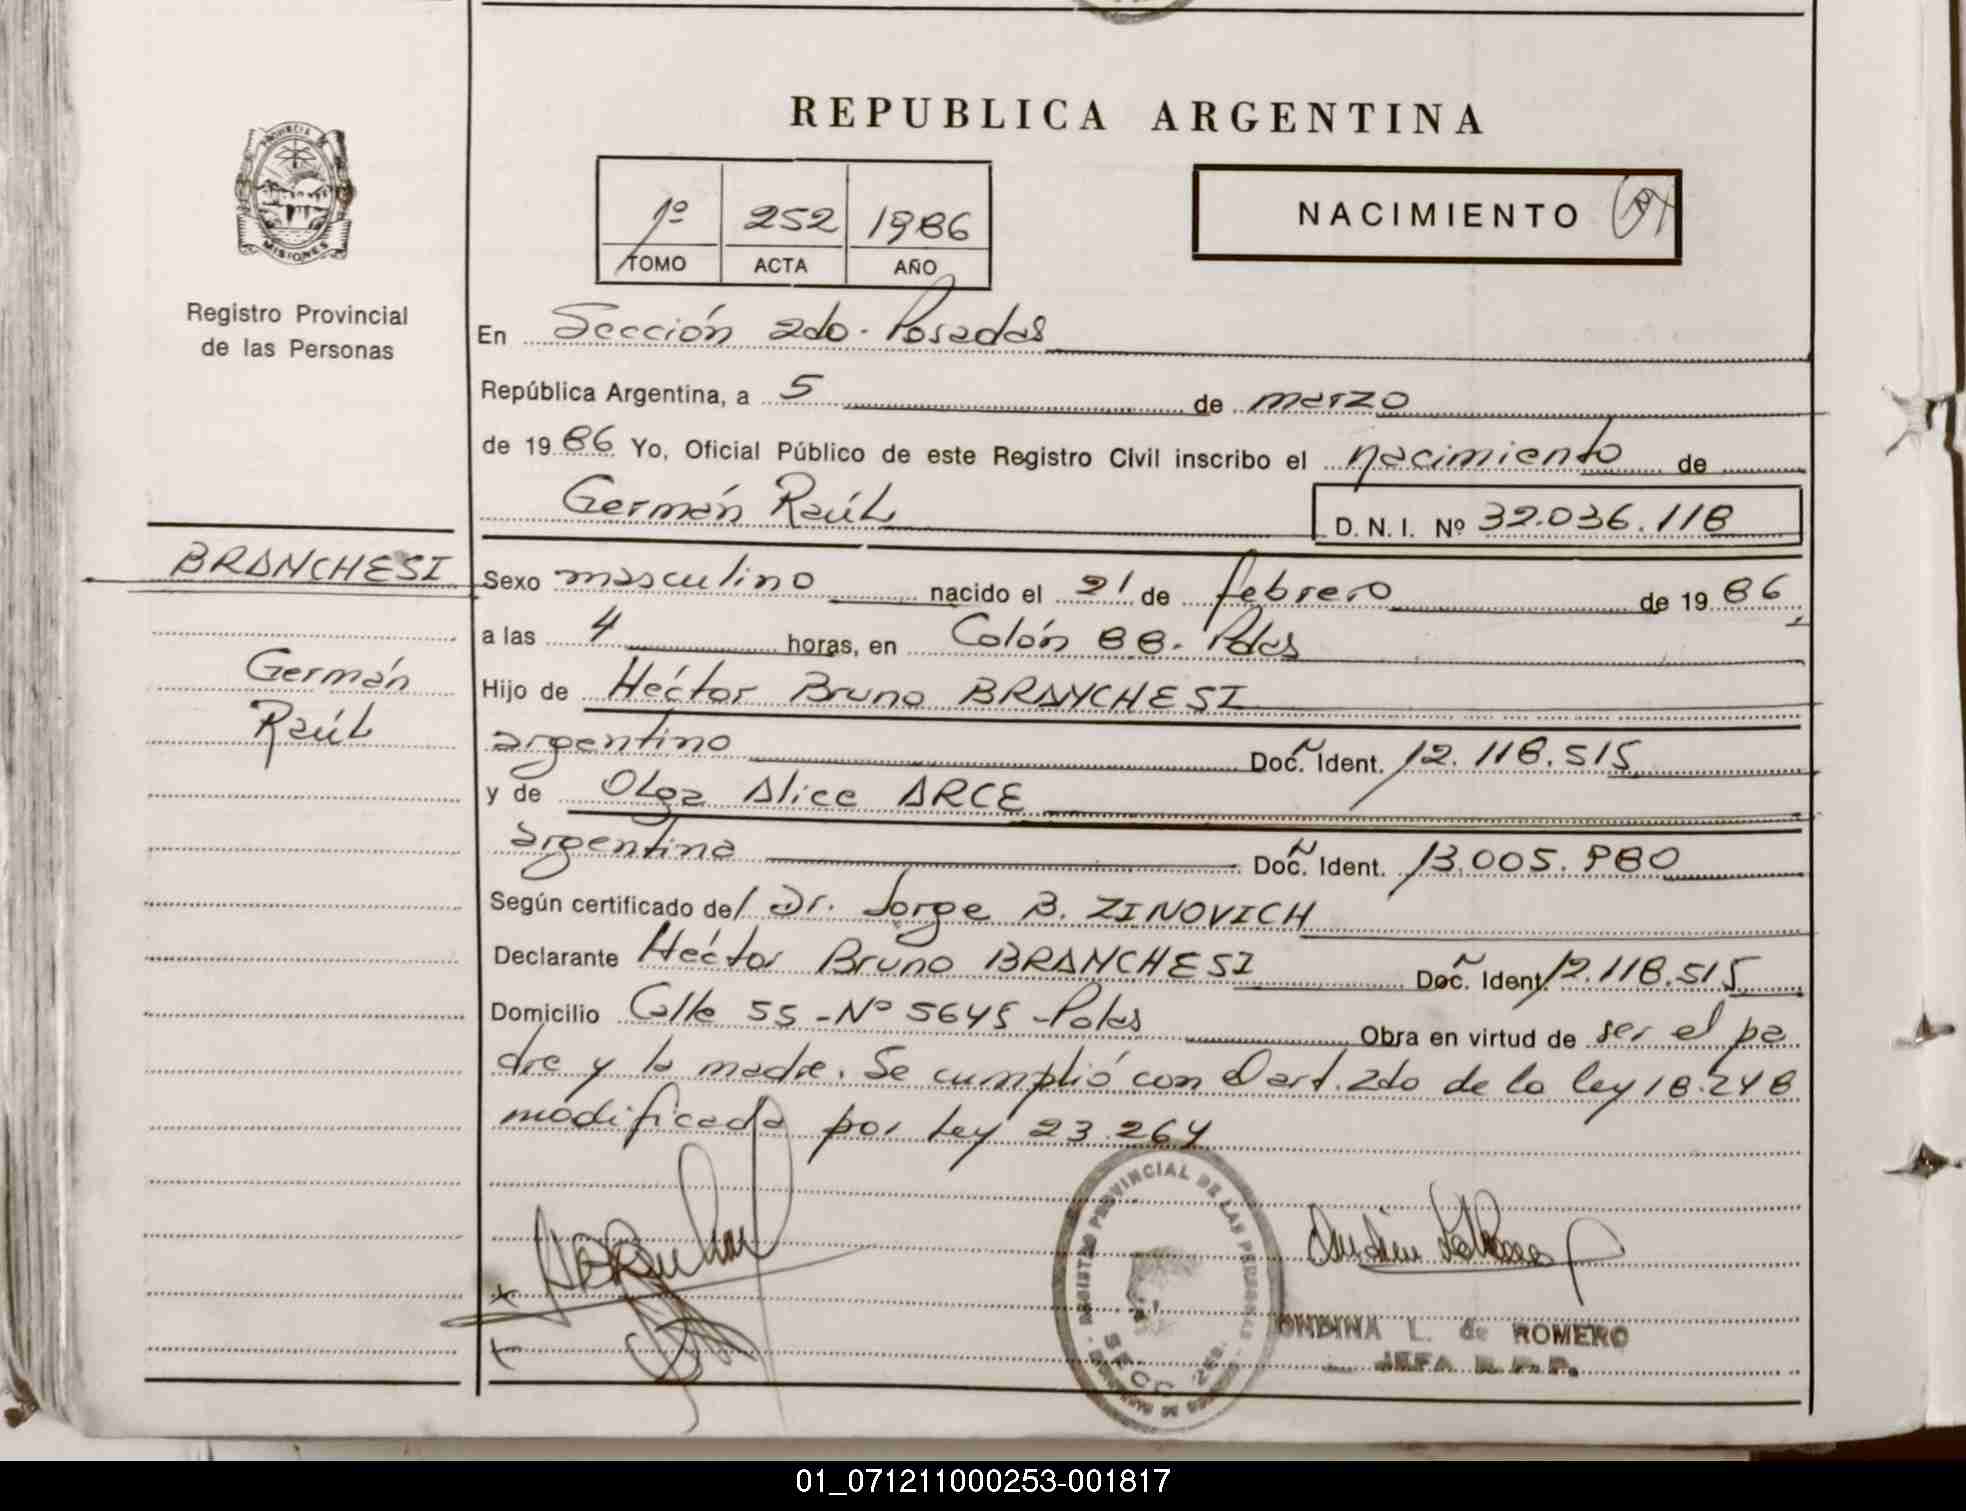 REPUBLICA ARGENTINA
PROVINCIA DE
MISIONES
Registro Provincial
de las Personas
1º 252 1986
TOMO ACTA AÑO
NACIMIENTO
En Sección 2do. Posadas
República Argentina, a 5 de marzo
de 1986 Yo, Oficial Público de este Registro Civil inscribo el nacimiento de
Germán Raúl D. N. I. Nº 32.036.118
BRANCHESI
Germán
Raúl
Sexo masculino nacido el 21 de febrero de 1986
a las 4 horas, en Colón 88. Pdas
Hijo de Héctor Bruno BRANCHESI
argentino Doc. Ident. 12.118.515
y de Olga Alice ARCE
argentina Doc. Ident. 13.005.980
Según certificado del Dr. Jorge B. ZINOVICH
Declarante Héctor Bruno BRANCHESI Doc. Ident. 12.118.515
Domicilio Calle 55 - Nº 5645 - Pdas Obra en virtud de ser el pa
dre y la madre. Se cumplió con el art. 2do de la ley 18.248
modificada por ley 23.264
REGISTRO PROVINCIAL DE LAS PERSONAS
SECC. 2da.
ONDINA L. de ROMERO
JEFA R.P.P.
01_071211000253-001817